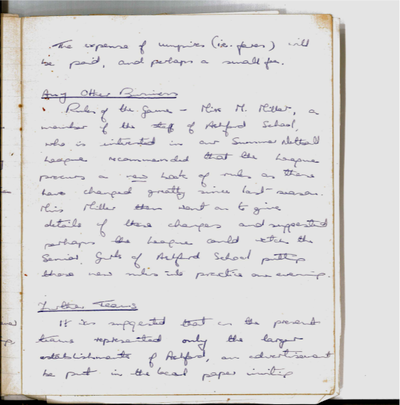 The expense of umpires (i.e. fares) will
be paid, and perhaps a small fee.
Any Other Business
Rules of the Game - Miss M. Miller, a
member of the staff of Ashford School,
who is interested in our Summer Netball
League recommended that the League
procure a new book of rules as these
have changed greatly since last season.
Miss Miller then went on to give
details of these changes and suggested
perhaps the League could watch the
Senior Girls of Ashford School putting
these new rules into practice one evening.
Further Teams
It was suggested that as the present
teams represented only the larger
establishments of Ashford, an advertisement
be put in the local paper inviting